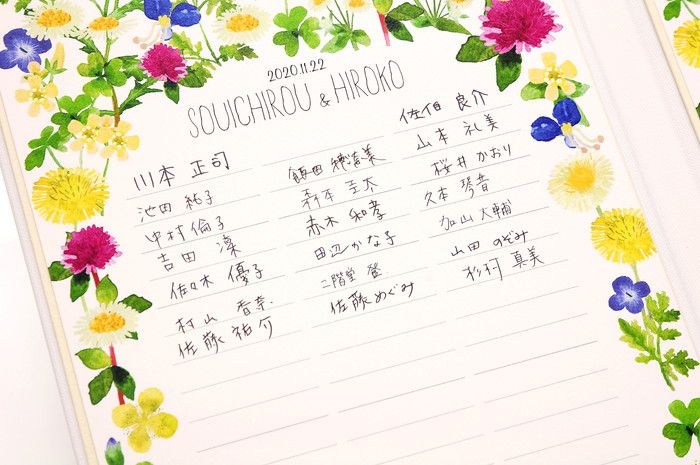 2020.11.22
SOUICHIROU & HIROKO
川本 正司
池田 結子
中村 倫子
吉田 凜
佐々木 優子
村山 香奈
佐藤 祐介
飯田 穂
森本 圭太
赤木 和孝
田辺 かな子
二階堂 登
佐藤 めぐみ
佐伯 良介
山本 礼美
桜井 かおり
久本 琴音
加山 大輔
山田 のぞみ
杉村 真美